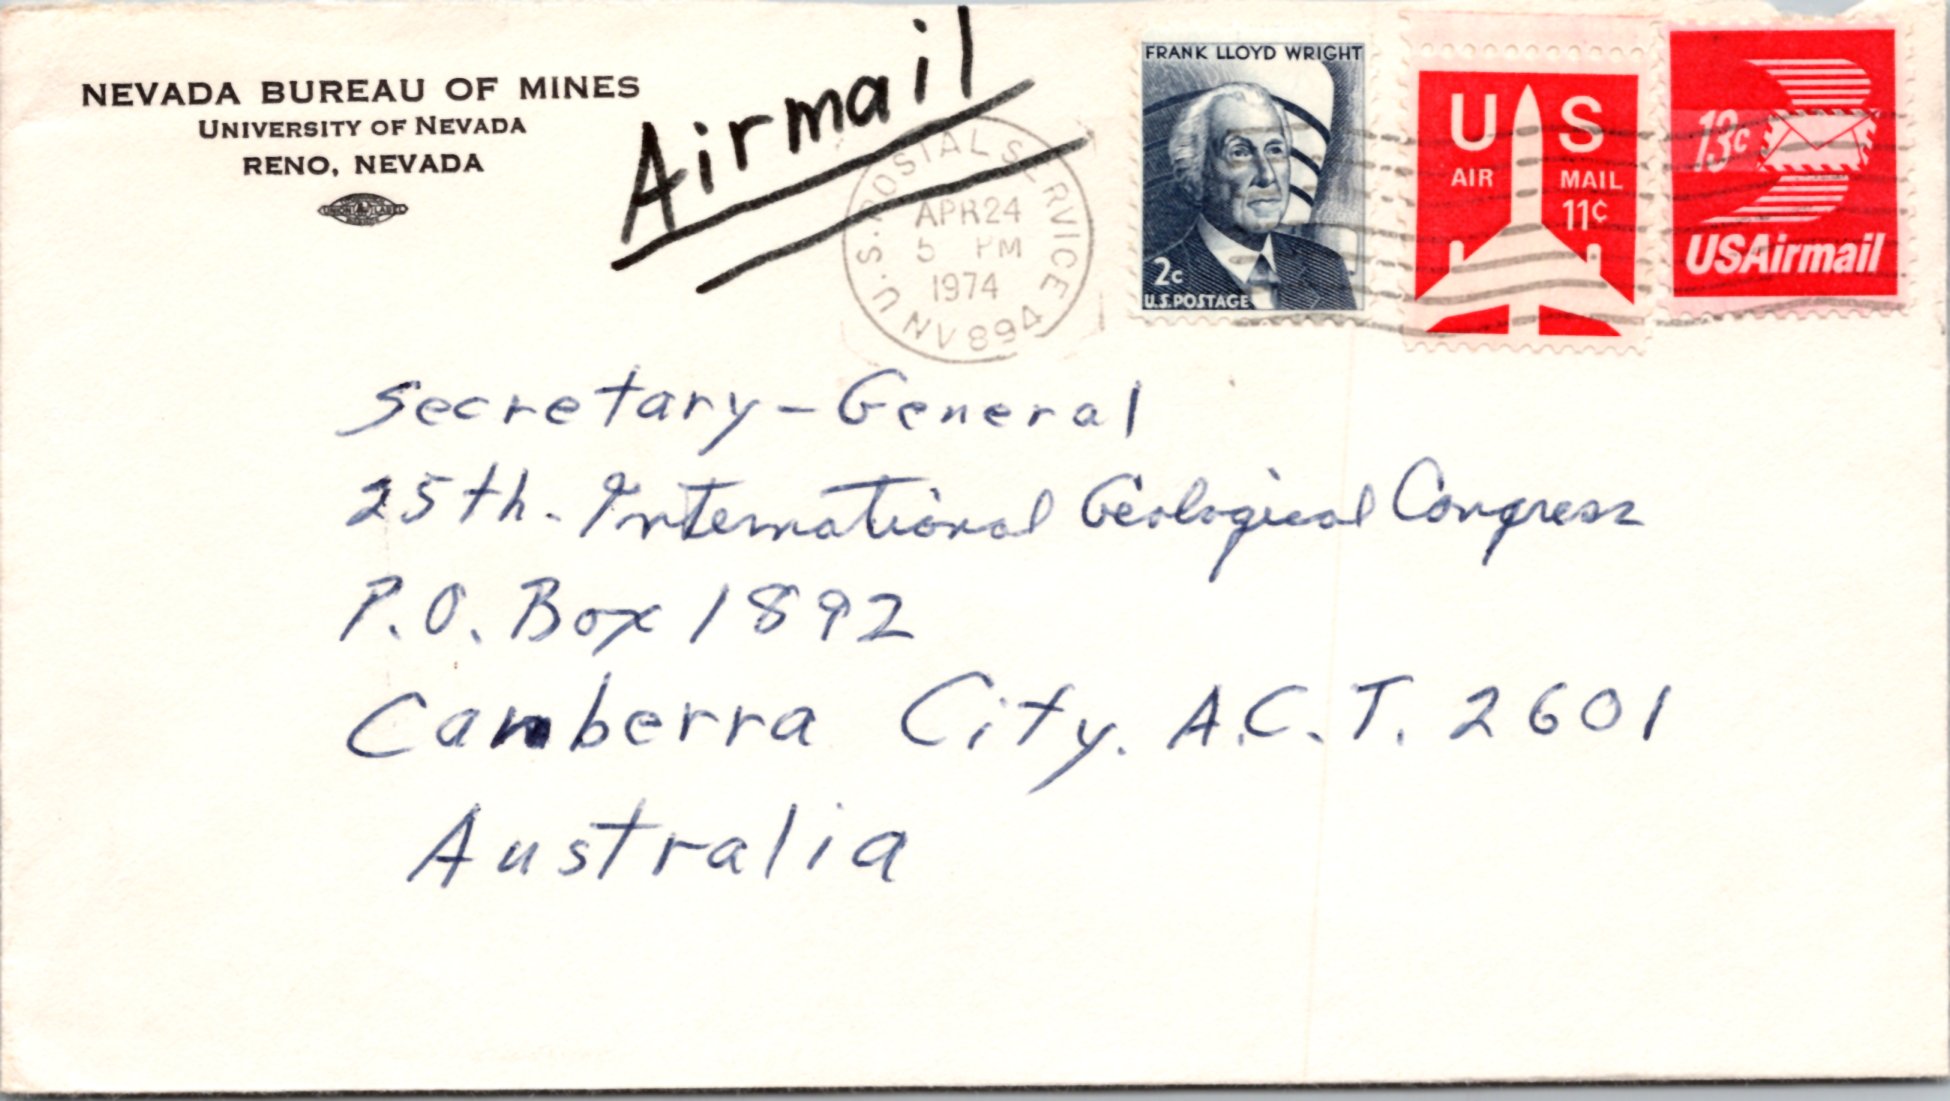 NEVADA BUREAU OF MINES
UNIVERSITY OF NEVADA
RENO, NEVADA
UNION LABEL
Airmail
U.S. POSTAL SERVICE NV 894
APR 24
5 PM
1974
FRANK LLOYD WRIGHT
2c
U.S. POSTAGE
US
AIR MAIL
11¢
13c
USAirmail
Secretary-General
25th. International Geological Congress
P.O. Box 1892
Canberra City. A.C.T. 2601
Australia